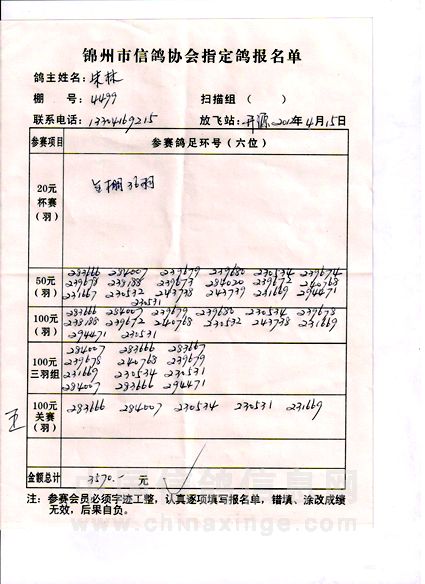 锦州市信鸽协会指定鸽报名单
鸽主姓名：朱林
棚 号：4499 扫描组（ ）
联系电话：13304169215 放飞站：开源 2012年4月15日
参赛项目 参赛鸽足环号（六位）
20元杯赛（羽） 全棚36羽
50元（羽）
283666 284007 239679 239680 230534 239674
239678 238188 239673 284020 239672 240768
231667 230532 243738 243739 231669 294471
230531
100元（羽）
283666 284007 239679 239680 230534 239678
238188 239672 240768 230532 243738 231669
294471 230531
100元三羽组
284007 283666 283667
239678 240768 239679
231669 230534 230531
284007 283666 294471
100元关赛（羽）
283666 284007 230534 230531 231669
金额总计 3570.- 元
注：参赛会员必须字迹工整，认真逐项填写报名单，错填、涂改成绩
无效，后果自负。
中国信鸽信息网
www.chinaxinge.com